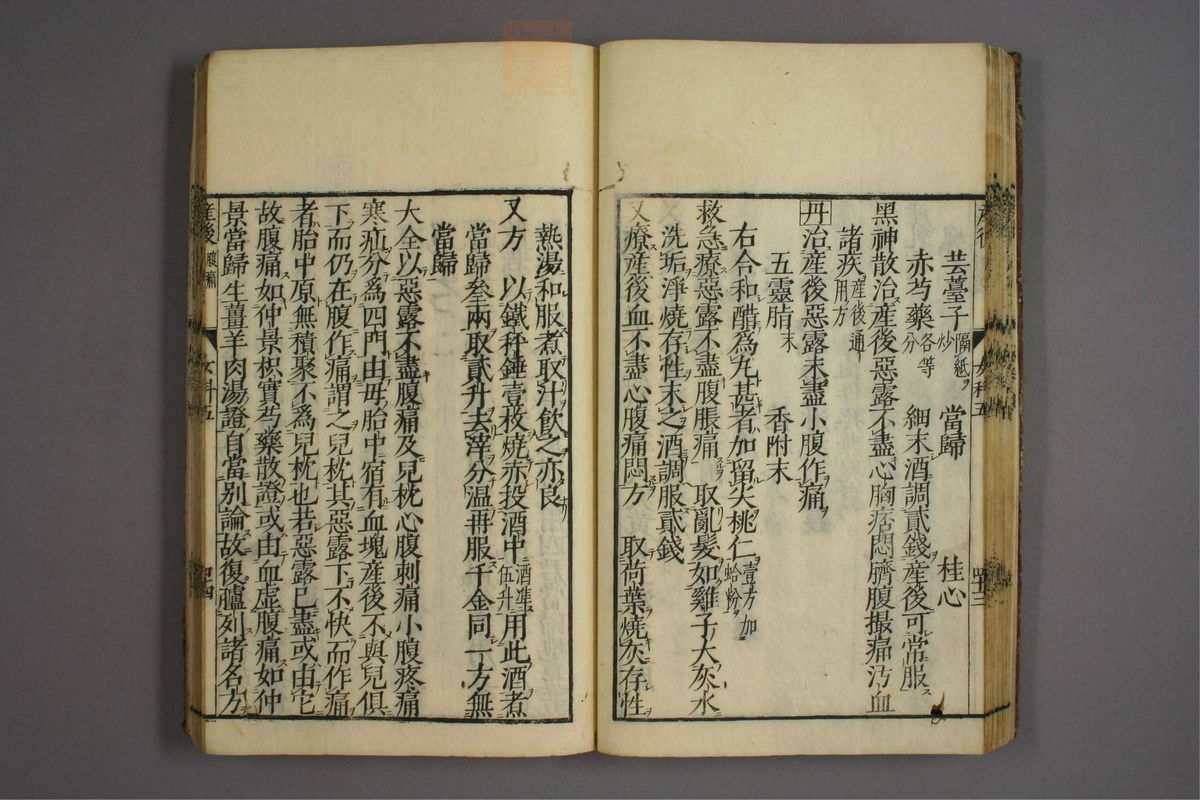 芸薹子隔紙炒 當歸 桂心
赤芍藥各等分 細末酒調貳錢産後可常服
黑神散治産後惡露不盡心胸痞悶臍腹撮痛汚血
諸疾産後通用方
丹治産後惡露未盡小腹作痛
五靈脂末 香附末
右合和醋爲丸甚者加留尖桃仁壹方加蛤粉
救急療惡露不盡腹脹痛 取亂髮如雞子大灰水
洗垢淨燒存性末之酒調服貳錢
又療産後血不盡心腹痛悶方 取荷葉燒灰存性
熱湯和服煮取汁飲之亦良
又方 以鐵秤錘壹枚燒赤投酒中酒準伍升用此酒煮
當歸叁兩取貳升去滓分温再服千金同一方無
當歸
大全以惡露不盡腹痛及兒枕心腹刺痛小腹疼痛
寒疝分爲四門由母胎中宿有血塊産後不與兒俱
下而仍在腹作痛謂之兒枕其惡露下不快而作痛
者胎中原無積聚不爲兒枕也若惡露已盡或由它
故腹痛如仲景枳實芍藥散證或由血虚腹痛如仲
景當歸生薑羊肉湯證自當别論故復臚列諸名方
産後 腹痛 女科五 四四